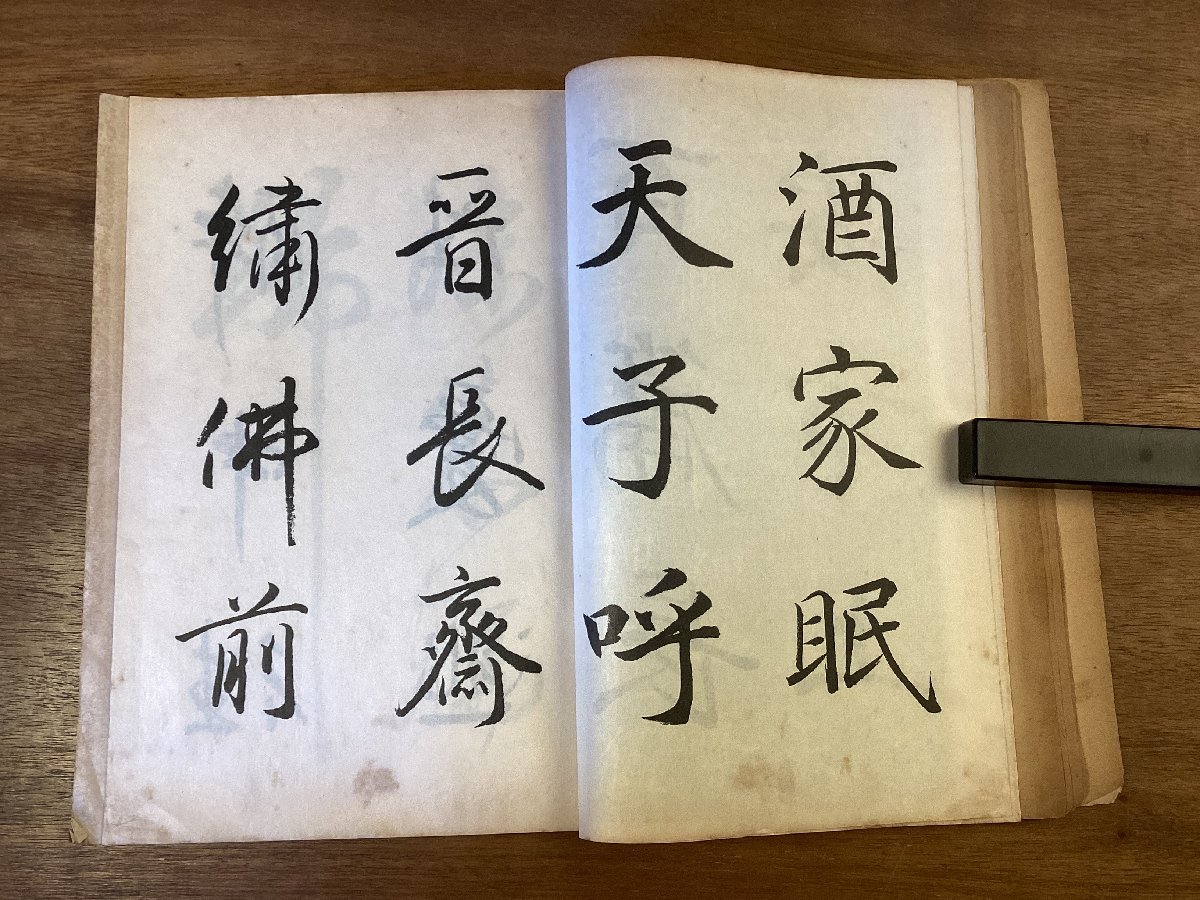 酒家眠
天子呼
晉長齋
繡佛前